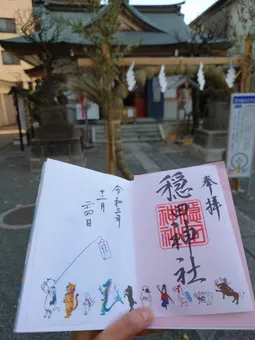 奉拝
穏田神社
穏田
神社
令和三年
十一月
二十四日